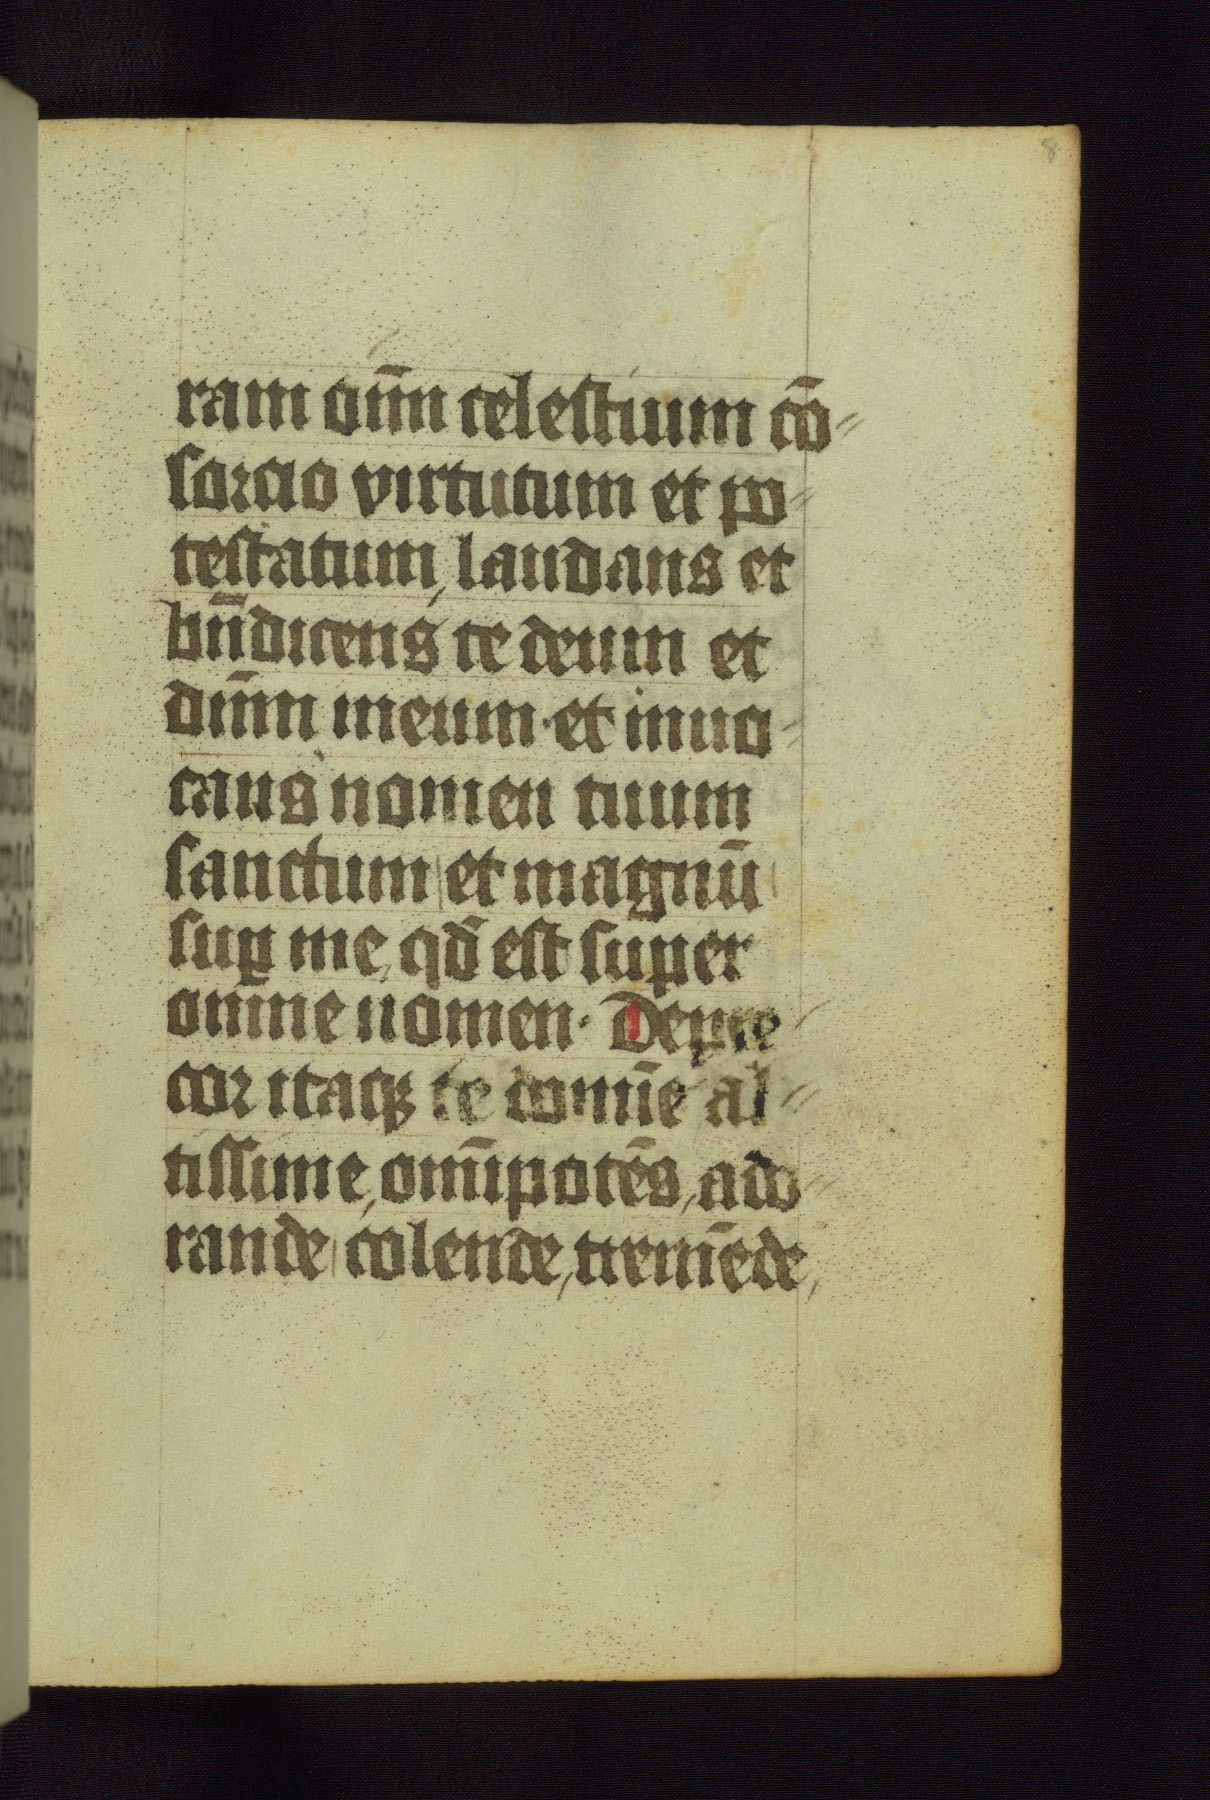 8
ram om̄n celestium cō〃
sorcio virtutum et po〃
testatum, laudans et
bn̄dicens te deum et
dm̄n meum · et inuo〃
cans nomen tuum
sanctum et magnū
suꝑ me, qđ est super
omne nomen · Depre〃
cor itaqꝫ te domīe al〃
tissime, om̄ipotēs, ado〃
rande, colende, tremēde,